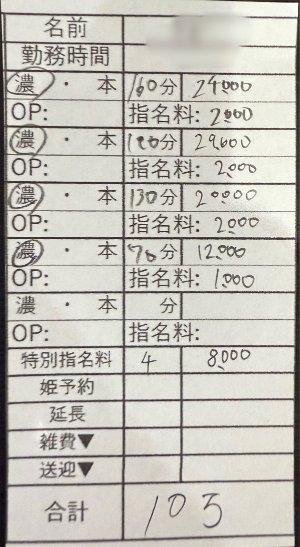 名前
勤務時間
濃 ・ 本 160分
OP: 指名料: 2,000
濃 ・ 本
OP: 指名料: 2,000
濃 ・ 本 130分 20,000
OP: 指名料: 2,000
濃 ・ 本 70分 12,000
OP: 指名料: 1,000
濃 ・ 本 分
OP: 指名料:
特別指名料 4 8,000
姫予約
延長
雑費▼
送迎▼
合計